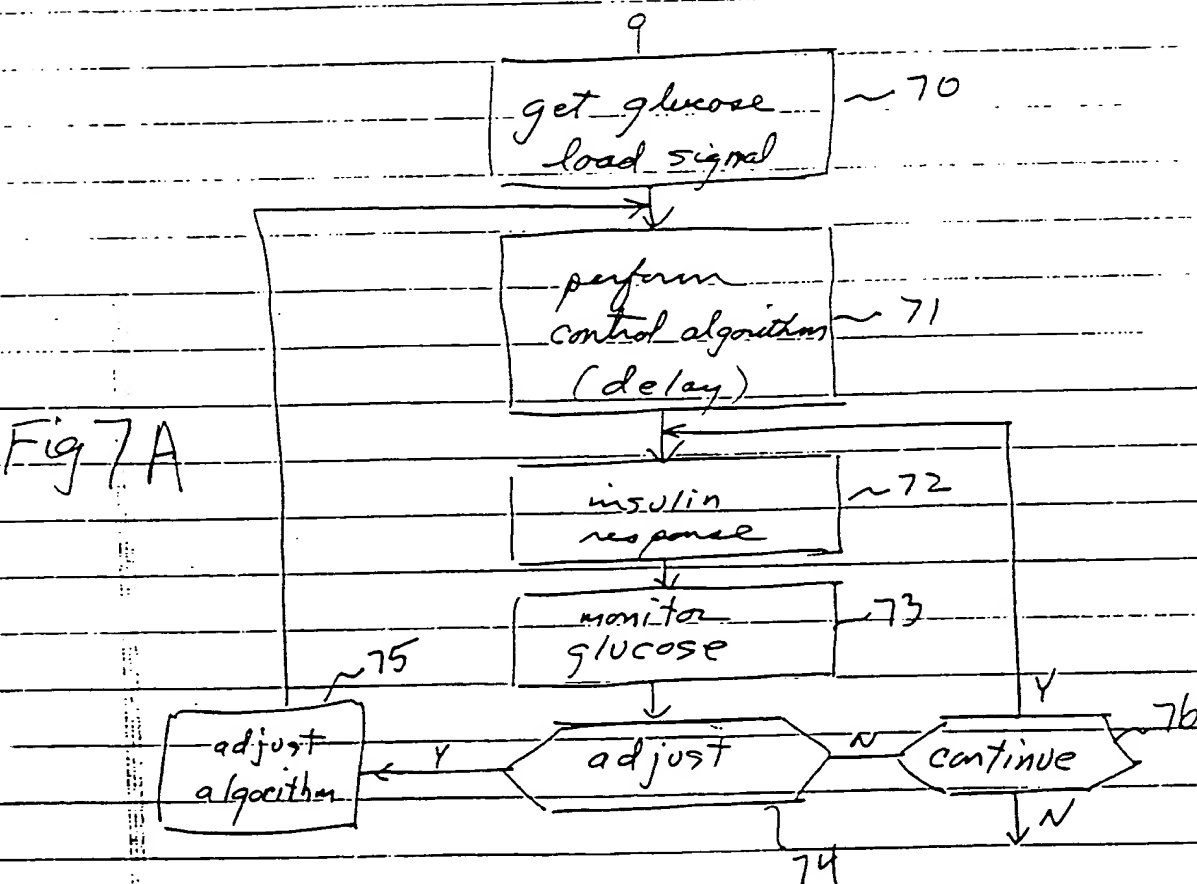 get glucose
load signal
70
perform
control algorithm
(delay)
71
Fig 7A
insulin
response
72
monitor
glucose
73
75
adjust
algorithm
Y
adjust
N
74
Y
continue
76
N